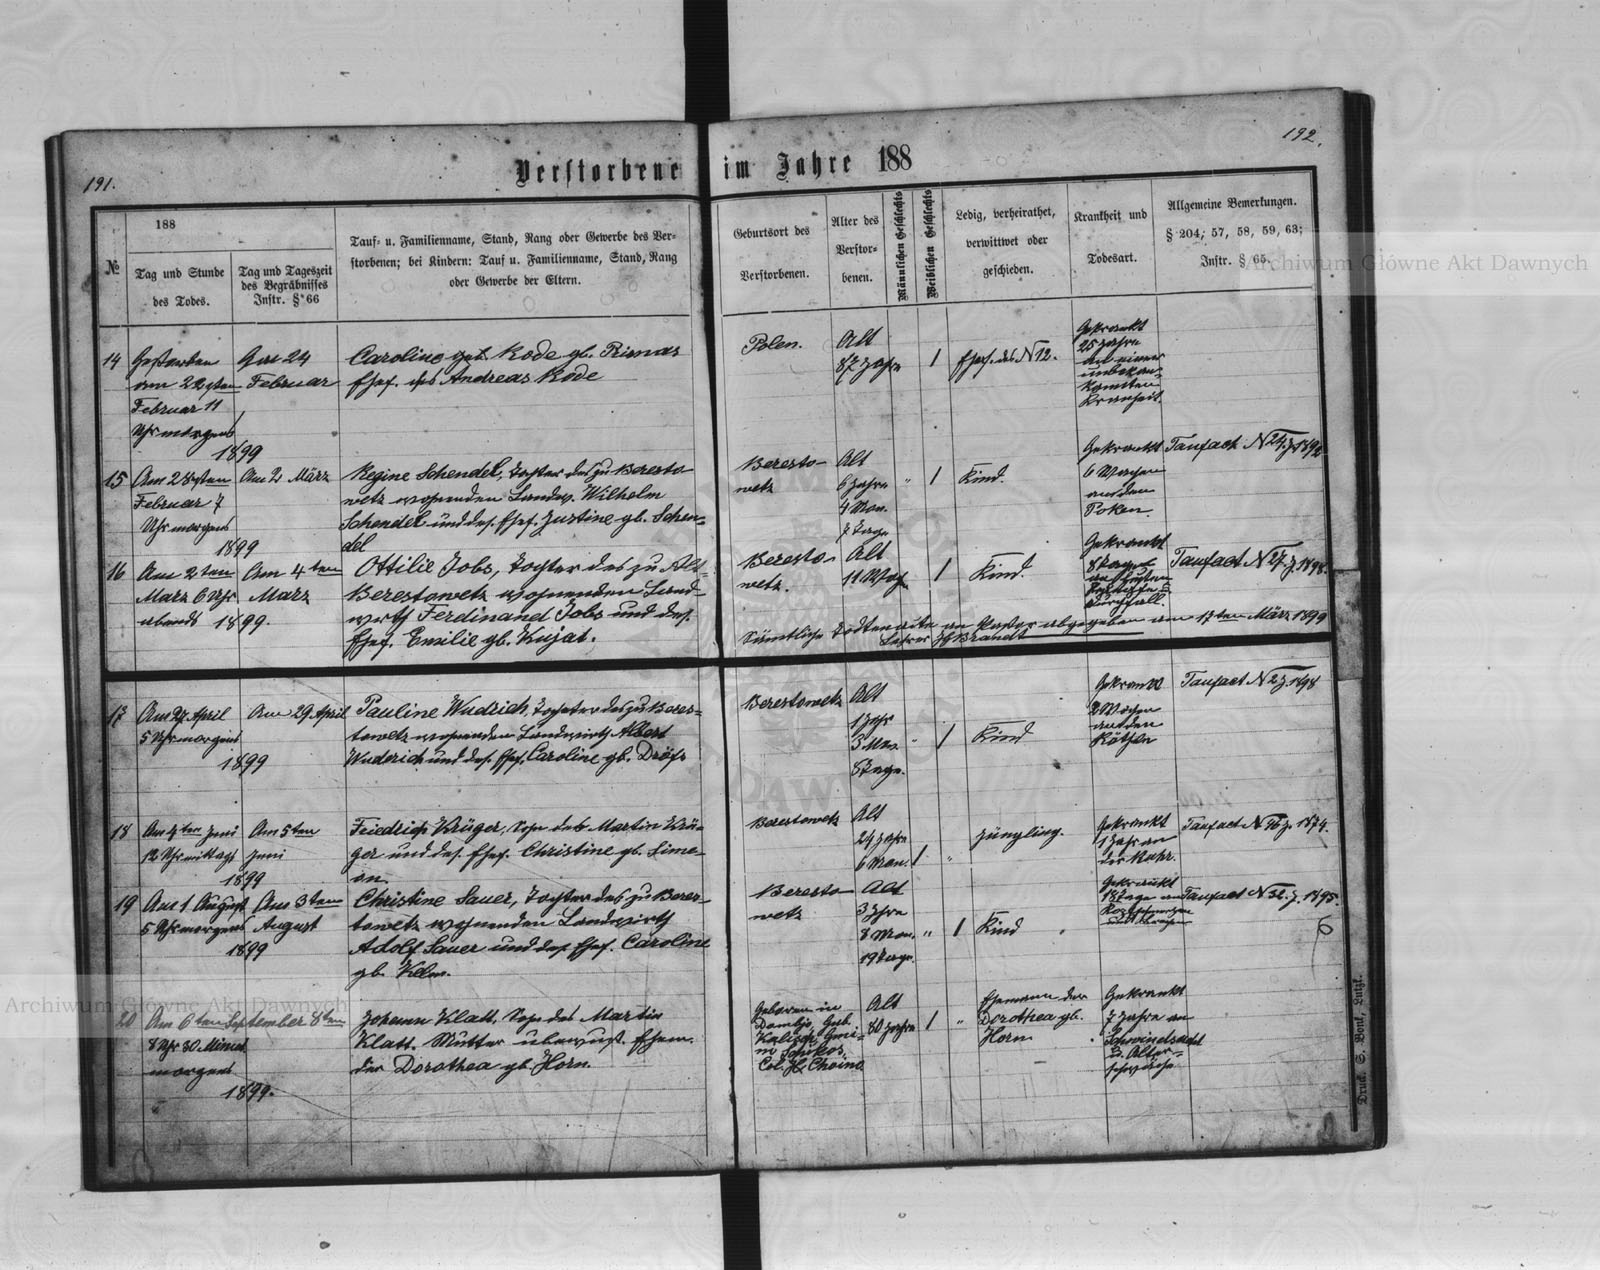 191.
192.
Verstorbene im Jahre 188
№
188
Tag und Stunde
des Todes.
Tag und Tageszeit
des Begräbnisses
Instr. § 66
Tauf- u. Familienname, Stand, Rang oder Gewerbe des Ver-
storbenen; bei Kindern: Tauf u. Familienname, Stand, Rang
oder Gewerbe der Eltern.
Geburtsort des
Verstorbenen.
Alter des
Verstor-
benen.
Männlichen Geschlechts
Weiblichen Geschlechts
Ledig, verheirathet,
verwittwet oder
geschieden.
Krankheit und
Todesart.
Allgemeine Bemerkungen.
§ 204, 57, 58, 59, 63;
Instr. § 65.
14
Gestorben
am 22gsten
Februar 11
Uhr morgens
1899
Am 24
Februar
Caroline geb. Rode gb. Rirnas
Ehef. des Andreas Rode
Polen.
Alt
87 Jahre
1
Ehef. des N 12.
Gekrankt
25 Jahre
an einer
unbekan-
kannten
Kranheit.
15
Am 28gsten
Februar 7
Uhr morgens
1899
Am 2 März
Regine Schendel, Tochter des zu Beresto-
wetz wohnenden Landw. Wilhelm
Schendel und des. Ehef. Justine gb. Schen-
del
Beresto-
wetz
Alt
6 Jahre
4 Mon.
7 Tage
"
1
Kind.
Gekrankt
6 Wochen
an den
Poken.
Taufact N 24. J 1892
16
Am 2ten
März 6 Uhr
abends 1899.
Am 4ten
März
Ottilie Jobs, Tochter des zu Alt-
Berestowetz wohnenden Land-
wirth Ferdinand Jobs und des.
Ehef. Emilie gb. Kujat.
Beresto-
wetz.
Alt
11 Woch
1
Kind.
Gekrankt
8 Tage
Durchfall.
Taufact N 27. J 1898.
Sämtliche Todtenakte an Pastor abgegeben am 17ten März 1899
Lehrer JG Brandt
17
Am 27. April
5 Uhr morgens
1899
Am 29 April
Pauline Wudrich, Tochter des zu Beres-
towetz wohnenden Landwirth Albert
Wuderich und des. Ehef. Caroline gb. Dräfs
Berestowetz
Alt
1 Jahr
3 Mon.
8 Tage.
"
1
Kind
Gekrankt
2 Wochen
an den
Röthen
Taufact N 2 J. 1898
18
Am 4ten Juni
12 Uhr mittags
1899
Am 5ten
Juni
Friedrich Krüger, Sohn des Martin Krü-
ger und des. Ehef. Christine gb. Sime-
on
Berestowetz
Alt
24 Jahre
6 Mon.
1
"
Jüngling.
Gekrankt
1 Jahr an
der Ruhr.
Taufact N 76 J. 1874.
19
Am 1 August
5 Uhr morgens
1899
Am 3ten
August
Christine Sauer, Tochter des zu Beres-
towetz wohnenden Landwirth
Adolf Sauer und des. Ehef. Caroline
gb. Kelm.
Beresto-
wetz
Alt
3 Jahre
8 Mon.
19 Tage.
"
1
Kind
Gekrankt
18 Tage an
Kopfschmerzen
Taufact N 32. J. 1895.
20
Am 6ten September
8 Uhr 30 Minut.
morgens
1899.
8ten
Johann Klatt, Sohn des Martin
Klatt. Mutter unbewust. Ehem.
der Dorothea gb. Horn.
Geboren in
Dombjo, Gub.
Kalisch, Gmi-
ne Schukos,
Col. H. Choino
Alt
80 Jahre
1
"
Ehemann der
Dorothea gb.
Horn
Gekrankt
7 Jahre an
Schwindsucht
u. Alter-
schwäche
Druck. S. Bonk, Lutzk.
Archiwum Główne Akt Dawnych
Archiwum Główne Akt Dawnych